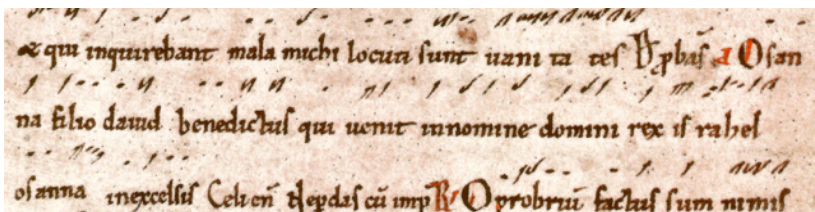 & qui inquirebant mala michi locuti sunt uani ta tes P pbas a Osan
na filio dauid benedictus qui uenit innomine domini rex is rahel
osanna inexcelsis Celi en Ne pdas cu imp R Oprobriu factus sum nimis